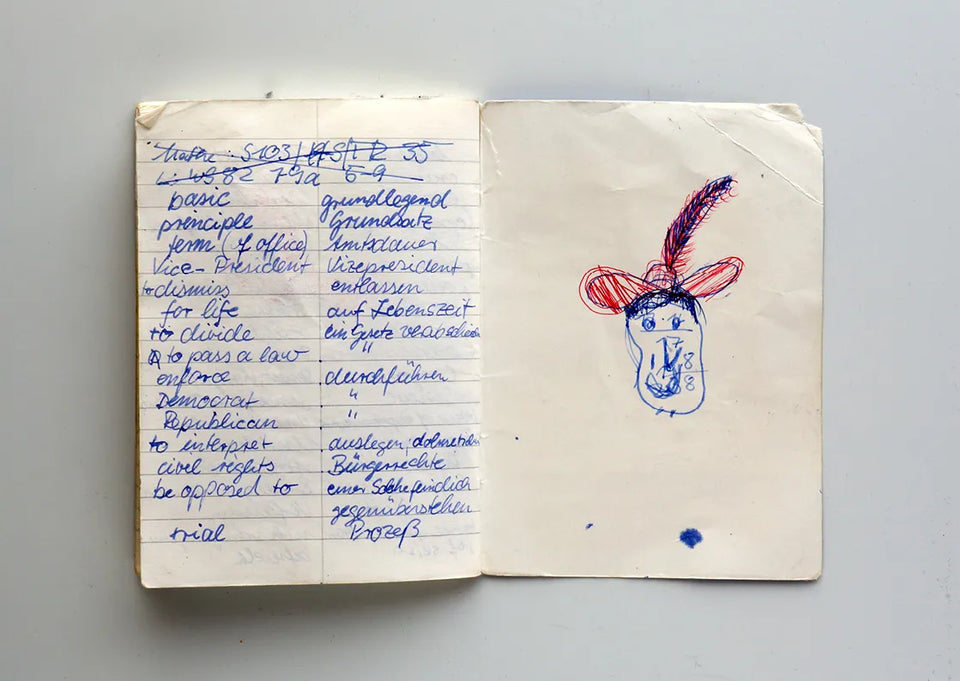 Mathe: S103/ 35
L: 49 82 79a 6-9
basic grundlegend
principle Grundsatz
term (of office) Amtsdauer
Vice-President Vizepresident
to dismiss entlassen
for life auf Lebenszeit
to divide ein Gesetz verabschieden
to pass a law "
enforce durchführen
Democrat "
Republican "
to interpret auslegen, dolmetschen
civel rights Bürgerrechte
be opposed to einer Sache feindlich
gegenüberstehen
trial Prozeß
8
8